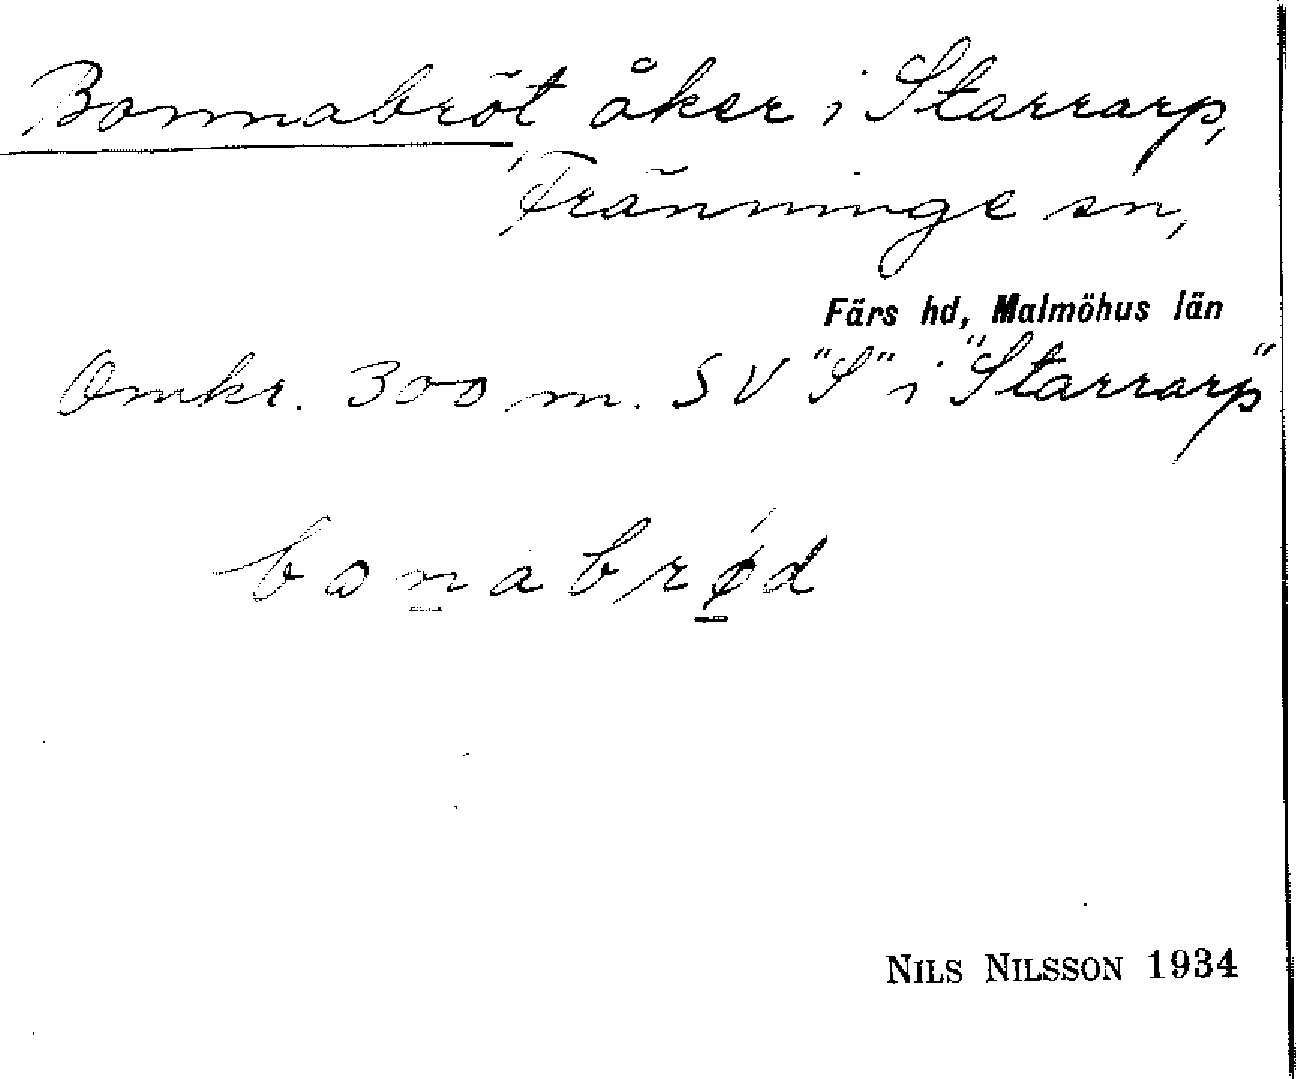 Bonnabröt åker i Starrarp,
Tränninge sn,
Färs hd, Malmöhus län
Omkr. 300 m. SV "S" i "Starrarp"
bonabrǿd
NILS NILSSON 1934